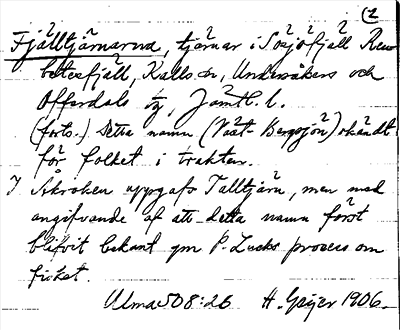 (2
Fjälltjärnarna, tjärnar i Sösjöfjäll Ren
betesfjäll, Kalls sn, Undersåkers och
Offerdals tg, Jämtl. l.
(forts.) Detta namn (Väst-Bergsjön) okändt
för folket i trakten.
I Åkroken uppgafs Talltjärn, men med
angifvande af att detta namn först
blifvit bekant gm P. process om
fisket.
Ulma 508:26 H. Geijer 1906.